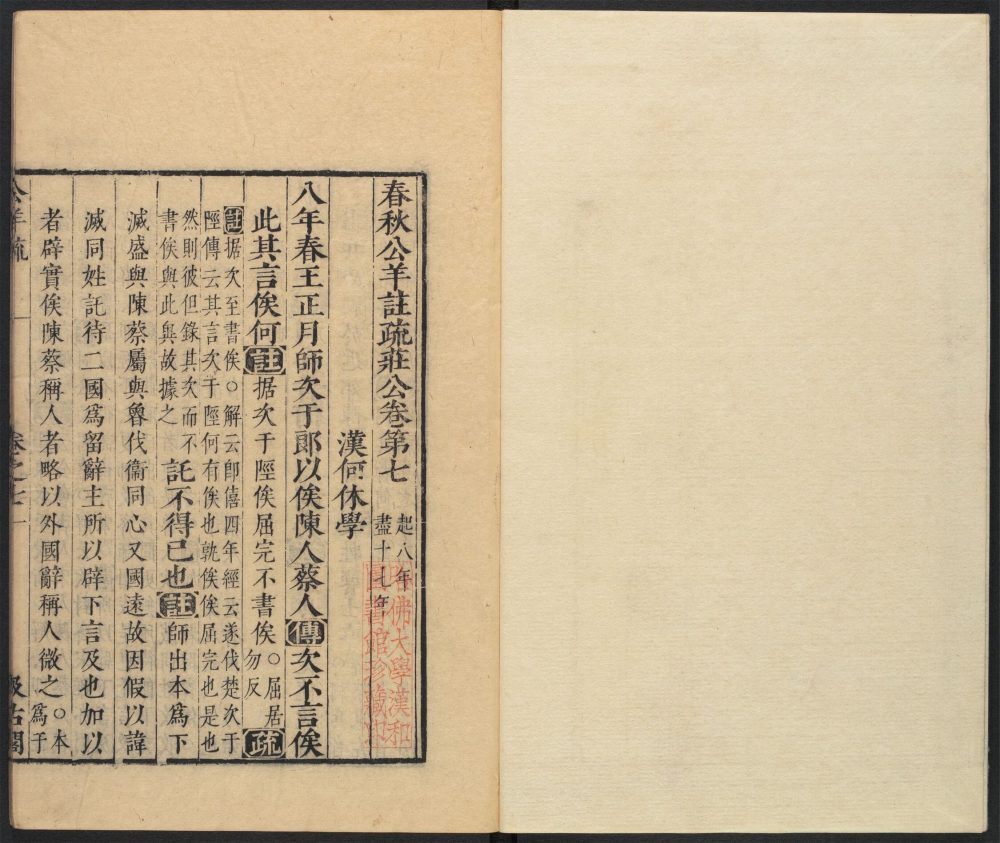 春秋公羊註疏莊公卷第七 起八年盡十七年
漢何休學
八年春王正月師次于郎以俟陳人蔡人傳次不言俟
此其言俟何註据次于陘俟屈完不書俟○屈居勿反疏
註据次至書俟○解云卽僖四年經云遂伐楚次于
陘傳云其言次于陘何有俟也孰俟俟屈完也是也
然則彼但錄其次而不
書俟與此異故據之
託不得已也註師出本爲下
滅盛與陳蔡屬與魯伐衞同心又國遠故因假以諱
滅同姓託待二國爲留辭主所以辟下言及也加以
者辟實俟陳蔡稱人者略以外國辭稱人微之○本爲于
公羊疏 卷之七 一 汲古閣
哈佛大學漢和
圖書館珍藏印